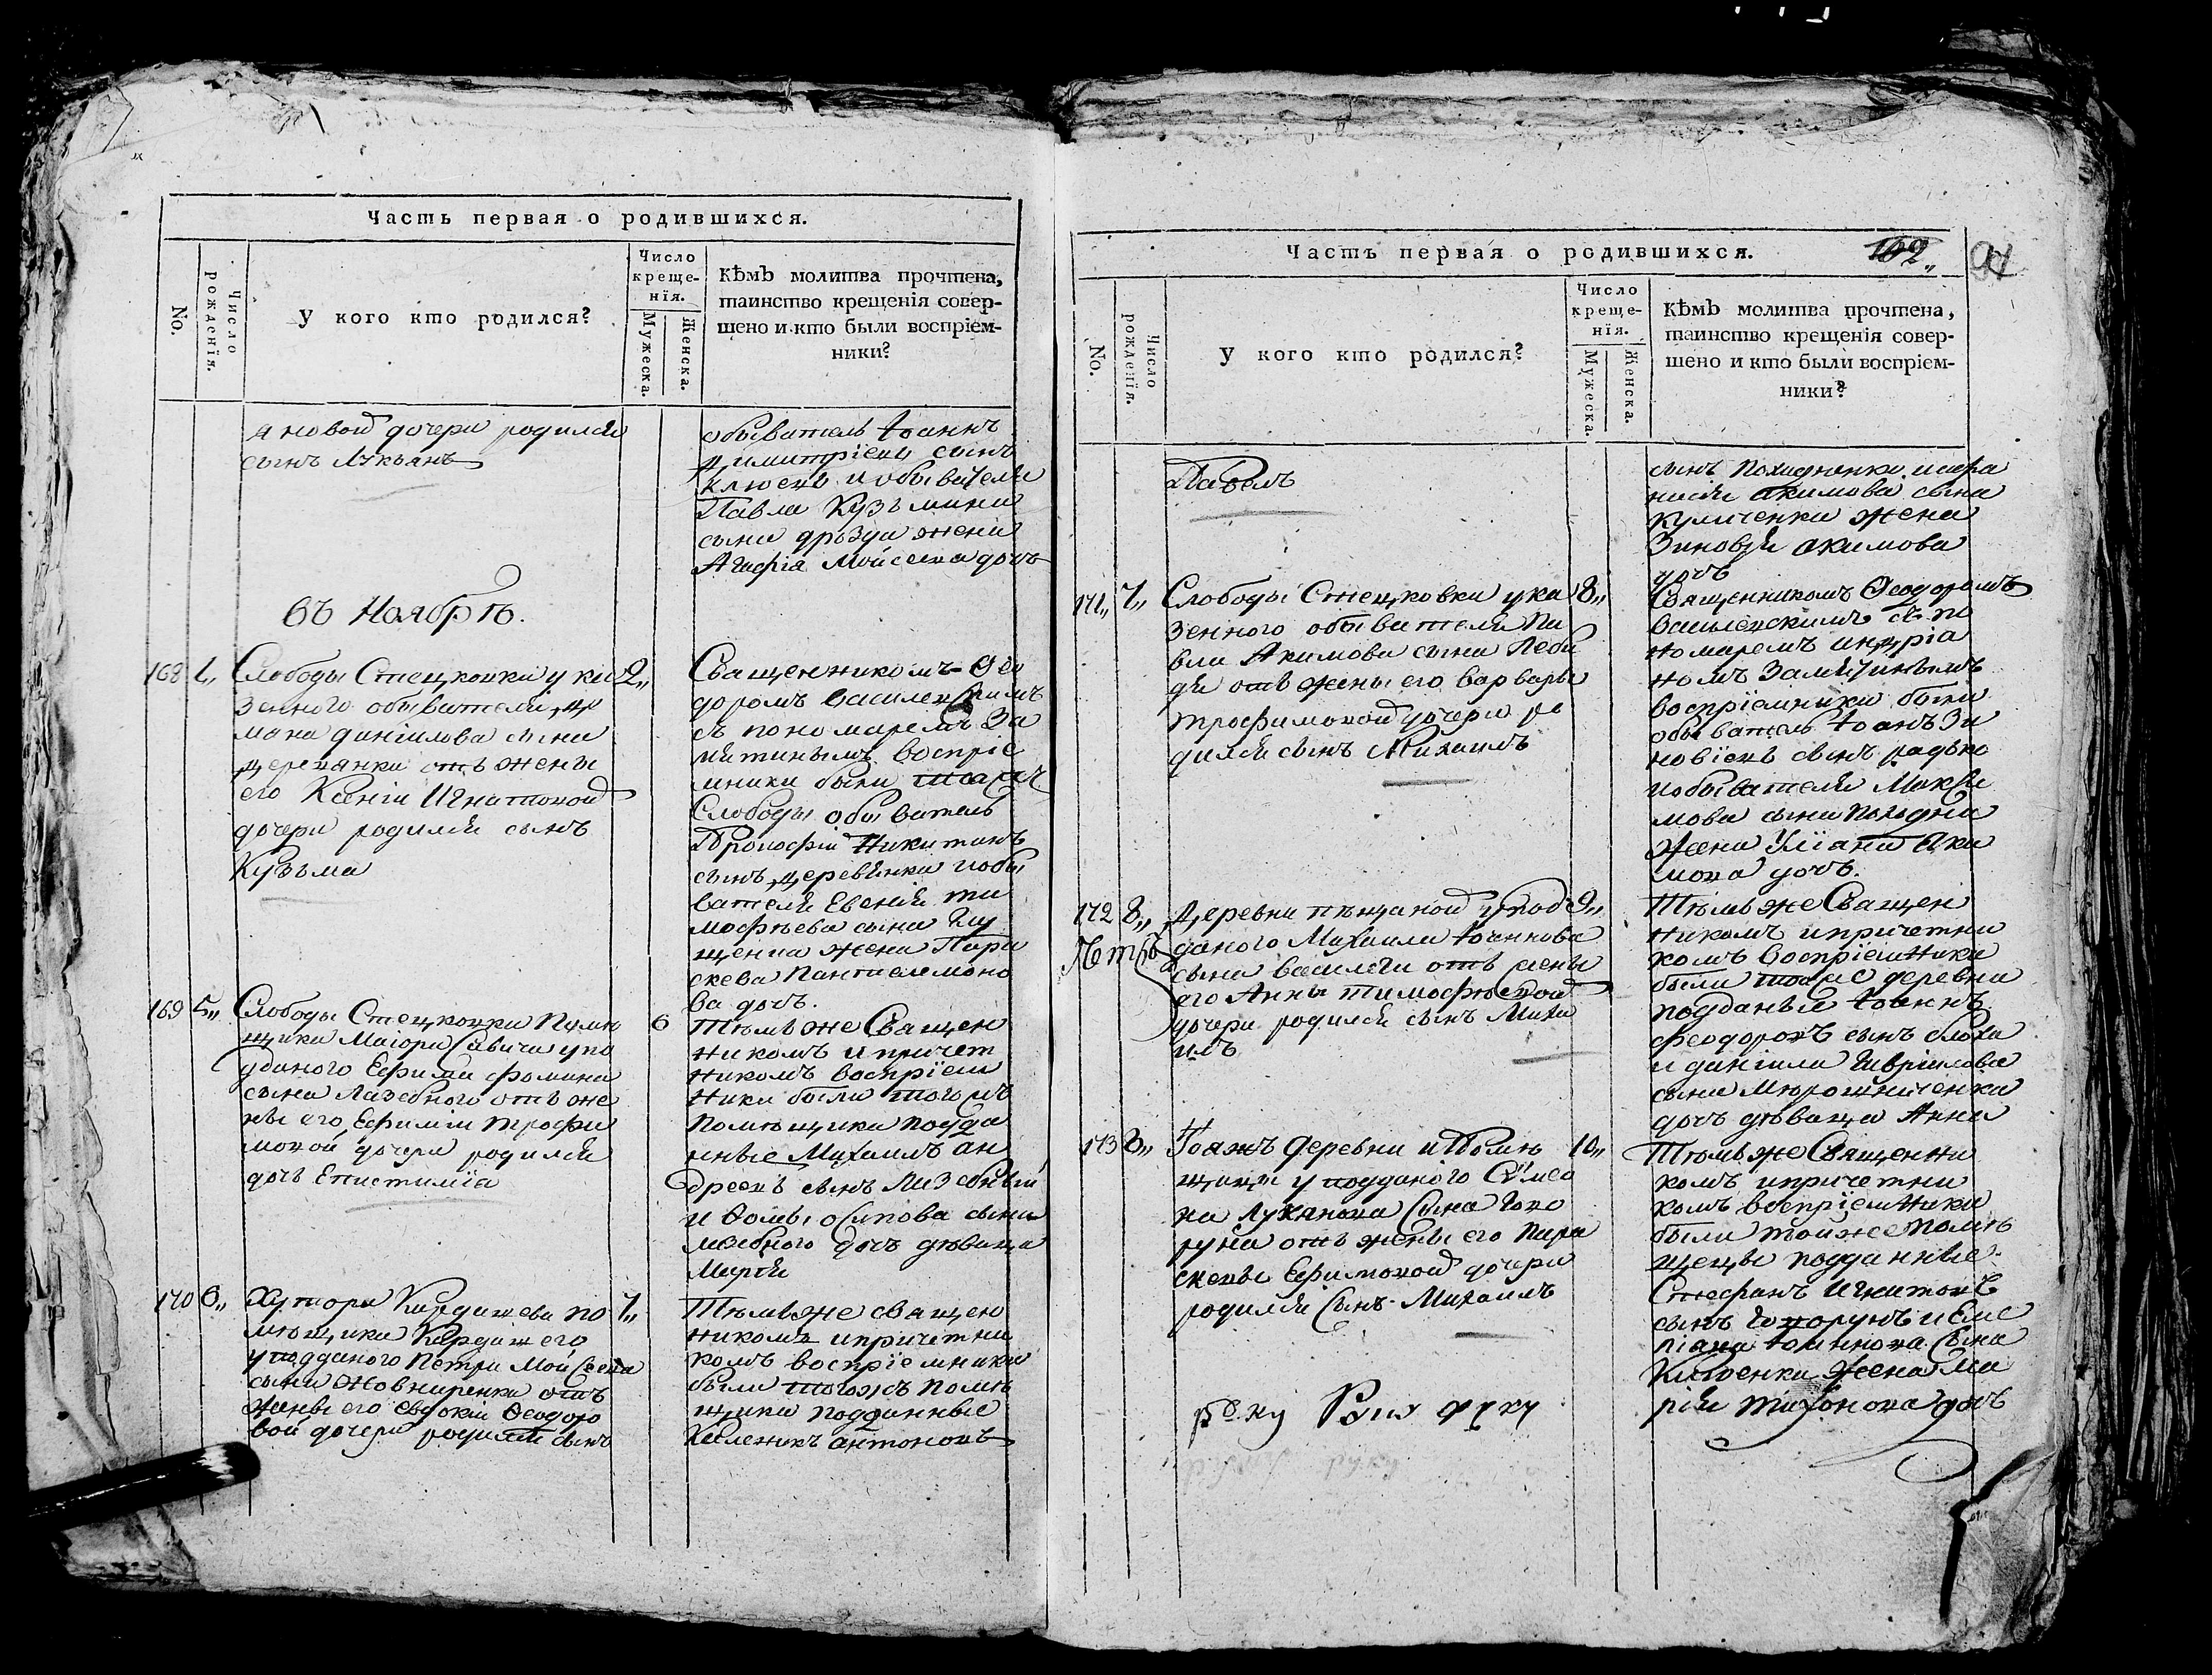 Часть первая о родившихся.
No.
Число рожденія.
У кого кто родился?
Число
креще-
нія.
Мужеска.
Женска.
Кѣмъ молитва прочтена,
таинство крещенія совер-
шено и кто были воспріем-
ники?
новой дочери родился
сынъ Лукьянъ
обыватель Іоаннъ
Димитріевъ сынъ
Клюевъ и обывателя
Павла Кузъмина
сына дрозда жена
Агафія Мойсеева дочь
въ Ноябрѣ.
168 1,,
Слободы Стецковки у ка
зенного обывателя
данiилова сына
деревянки отъ жены
его Ксеніи Игнатовой
дочери родился сынъ
Кузъма
2,,
Священникомъ Ѳео
доромъ Василевскимъ
съ пономаремъ За
мятинымъ воспріе
мники были тоя жъ
Слободы обыватель
Прокофій Никитинъ
сынъ деревянка и обы
вателя Евсея Ти
мофѣева сына
жена Пара
скева Пантелеймоно
ва дочь.
169 5,,
Слободы Стецковки Помѣ
щика Маіора Савича у по
дданого Ефима Фомина
сына Лазебного отъ же
ны его Ефиміи Трофи
мовой дочери родился
дочь Епистимія
6
Тѣмъ же Священ
никомъ и причет
никомъ воспріем
ники были того жъ
помѣщика подда
нные Михаилъ Ан
дреевъ сынъ Лазебный
и Ѳомы Осипова сына
лазебного дочь дѣвица
Марѳа
170 6,,
Хутора Кардашева по
мѣщика Кардашего
у подданого Петра Мойсеева
сына Жовниренка отъ
жены его Евдокіи Ѳеодоро
вой дочери родился сынъ
7,,
Тѣмъ же священ
никомъ и причетни
комъ воспріемники
были тогожъ помѣ
щика подданные
антоновъ
Часть первая о родившихся.
102,,
No.
Число рожденія.
У кого кто родился?
Число
креще-
нія.
Мужеска.
Женска.
Кѣмъ молитва прочтена,
таинство крещенія совер-
шено и кто были воспріем-
ники?
Павелъ
сынъ
акимова сына
Куличенка жена
Зиновія акимова
дочь
171,, 7,,
Слободы Стецковки у ка
зенного обывателя Па
вла Акимова сына Лебе
дя отъ жены его Варвары
Трофимовой дочери ро
дился сынъ Михаилъ
8,,
Священникомъ Ѳеодоромъ
Василевскимъ съ по
номаремъ Андріа
номъ Замятинымъ
воспріемники были
обыватель Іоанъ Зи
новіевъ сынъ радько
и обывателя Макси
мова сына
жена Уліана Аки
мова дочь.
172 8,,
Деревни пѣщаной у под
даного Михаила Іоаннова
сына Василги отъ жены
его Анны Тимофѣевой
дочери родился сынъ Миха
илъ
9,,
Тѣмъ же Священ
никомъ и причетни
комъ воспріемники
были тояже деревни
подданые Іоаннъ
Феодоровъ сынъ
и данiила Гавріилова
сына Мирошниченка
дочь дѣвица Анна
173 8,,
Тояжъ деревни и Помѣ
щицы у подданого Сѵмео
на Лукянова сына Гово
руна отъ жены его Пара
скевы Ефимовой дочери
родился сынъ Михаилъ
10,,
Тѣмъ же Священни
комъ и причетни
комъ воспріемники
были тойже помѣ
щицы подданные
Стефанъ Игнатовъ
сынъ Говорунъ и Еме
ліана Іоаннова сына
жена Ма
рія Тихонова дочь